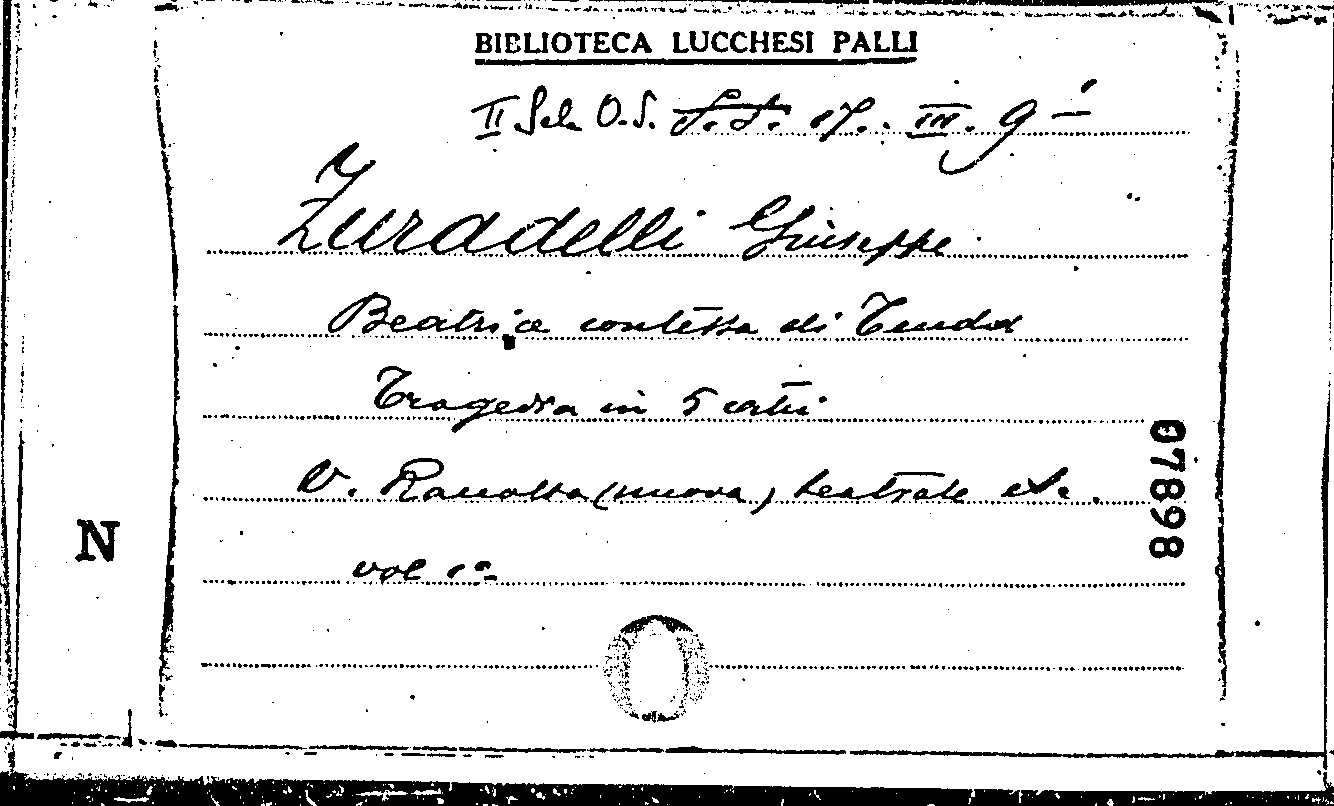 BIBLIOTECA LUCCHESI PALLI
II Sala O.S. S.T. 17. III. 9
Zuradelli Giuseppe
Beatrice contessa di Tenda
Tragedia in 5 atti
V. Raccolta (nuova) teatrale etc.
vol 1º
07898
N